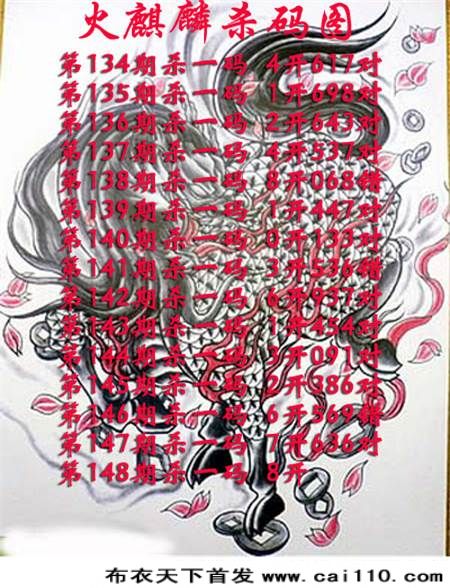 火麒麟杀码图
第134期杀一码 4开617对
第135期杀一码 1开698对
第136期杀一码 2开643对
第137期杀一码 4开537对
第138期杀一码 8开068错
第139期杀一码 1开447对
第140期杀一码 0开133对
第141期杀一码 3开536错
第142期杀一码 6开937对
第143期杀一码 1开454对
第144期杀一码 3开091对
第145期杀一码 2开386对
第146期杀一码 6开569错
第147期杀一码 7开636对
第148期杀一码 8开
布衣天下首发 www.cai110.com